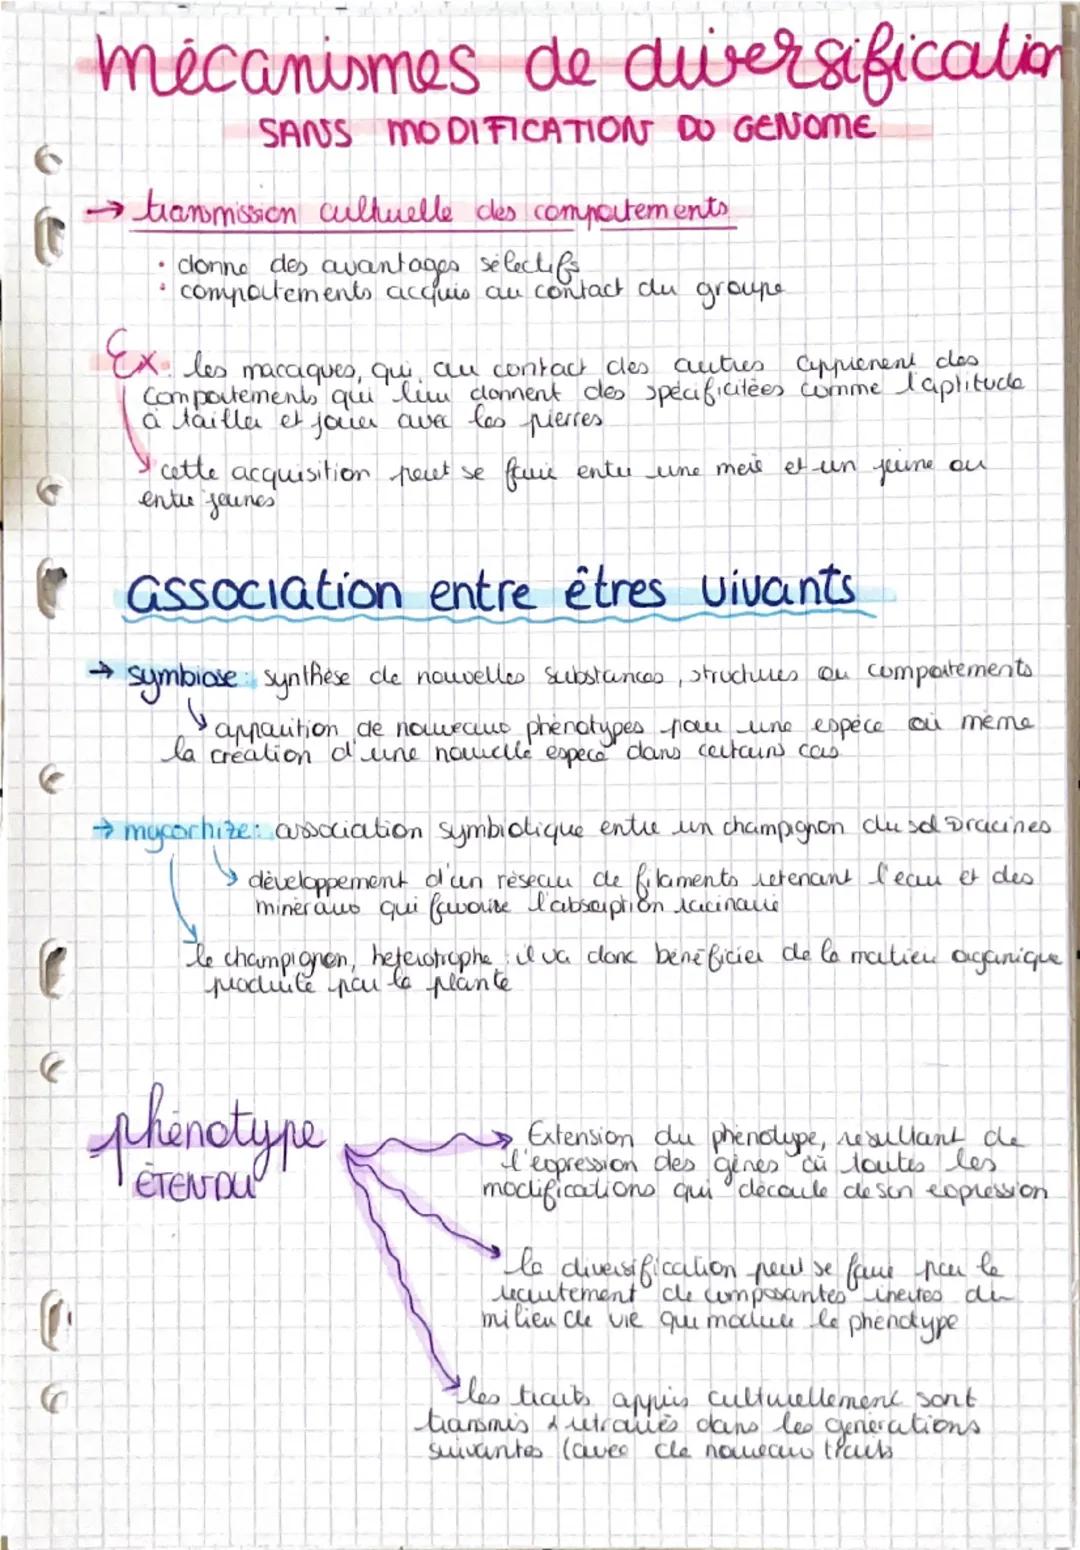 mécanismes de diversification
SANS MODIFICATION DU GENOME
→ transmission culturelle des comportements
· donne des avantages sélectifs
· comportements acquis au contact du groupe
Ex: les macaques, qui, au contact des autres apprenent des
comportements qui leur donnent des spécificitées comme l'aptitude
à tailler et jouer avec les pierres
cette acquisition peut se faire entre une mère et un jeune ou
entre jeunes
association entre êtres vivants
→ symbiose: synthèse de nouvelles substances, structures ou comportements
apparition de nouveaux phénotypes pour une espèce où même
la création d'une nouvelle espèce dans certains cas
→ mycorhize: association symbiotique entre un champignon du sol & racines
développement d'un réseau de filaments retenant l'eau et des
minéraux qui favorise l'absorption racinaire
le champignon, hétérotrophe il va donc bénéficier de la matière organique
produite par la plante
phénotype
ÉTENDU
Extension du phénotype, résultant de
l'expression des gènes où toutes les
modifications qui découle de son expression
la diversification peut se faire par le
recrutement de composantes inertes du
milieu de vie qui module le phénotype
les traits appris culturellement sont
transmis & retrouvés dans les générations
suivantes (avec de nouveau traits